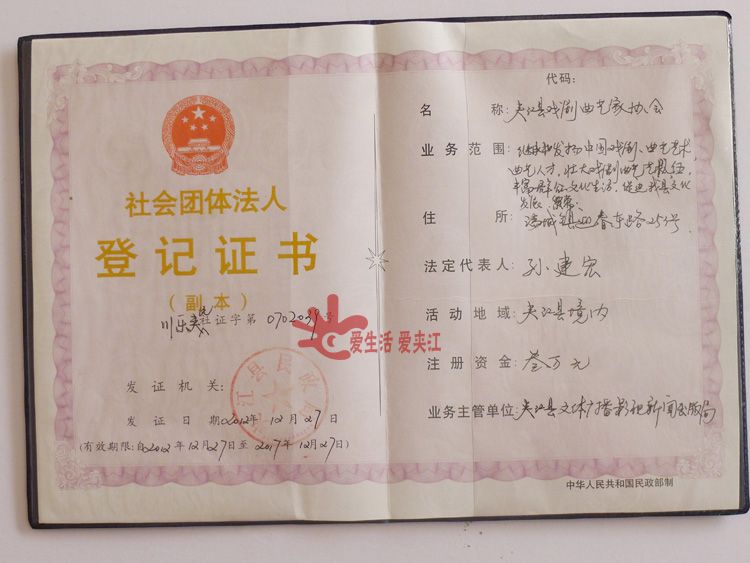 社会团体法人
登记证书
(副本)
川乐夹民社证字第 0702039 号
爱生活 爱夹江
发证机关:
江县民政局
发证日期 2012年 12月 27日
(有效期限:自2012年12月27日至2017年12月27日)
代码:
名称: 夹江县戏剧曲艺家协会
业务范围: 继承和发扬中国戏剧、曲艺艺术,
曲艺人才,壮大戏剧曲艺队伍
丰富群众文化生活,促进我县文化
发展、繁荣。
住所: 漹城镇迎春东路257号
法定代表人: 孙建宏
活动地域: 夹江县境内
注册资金: 叁万元
业务主管单位: 夹江县文体广播影视新闻出版局
中华人民共和国民政部制